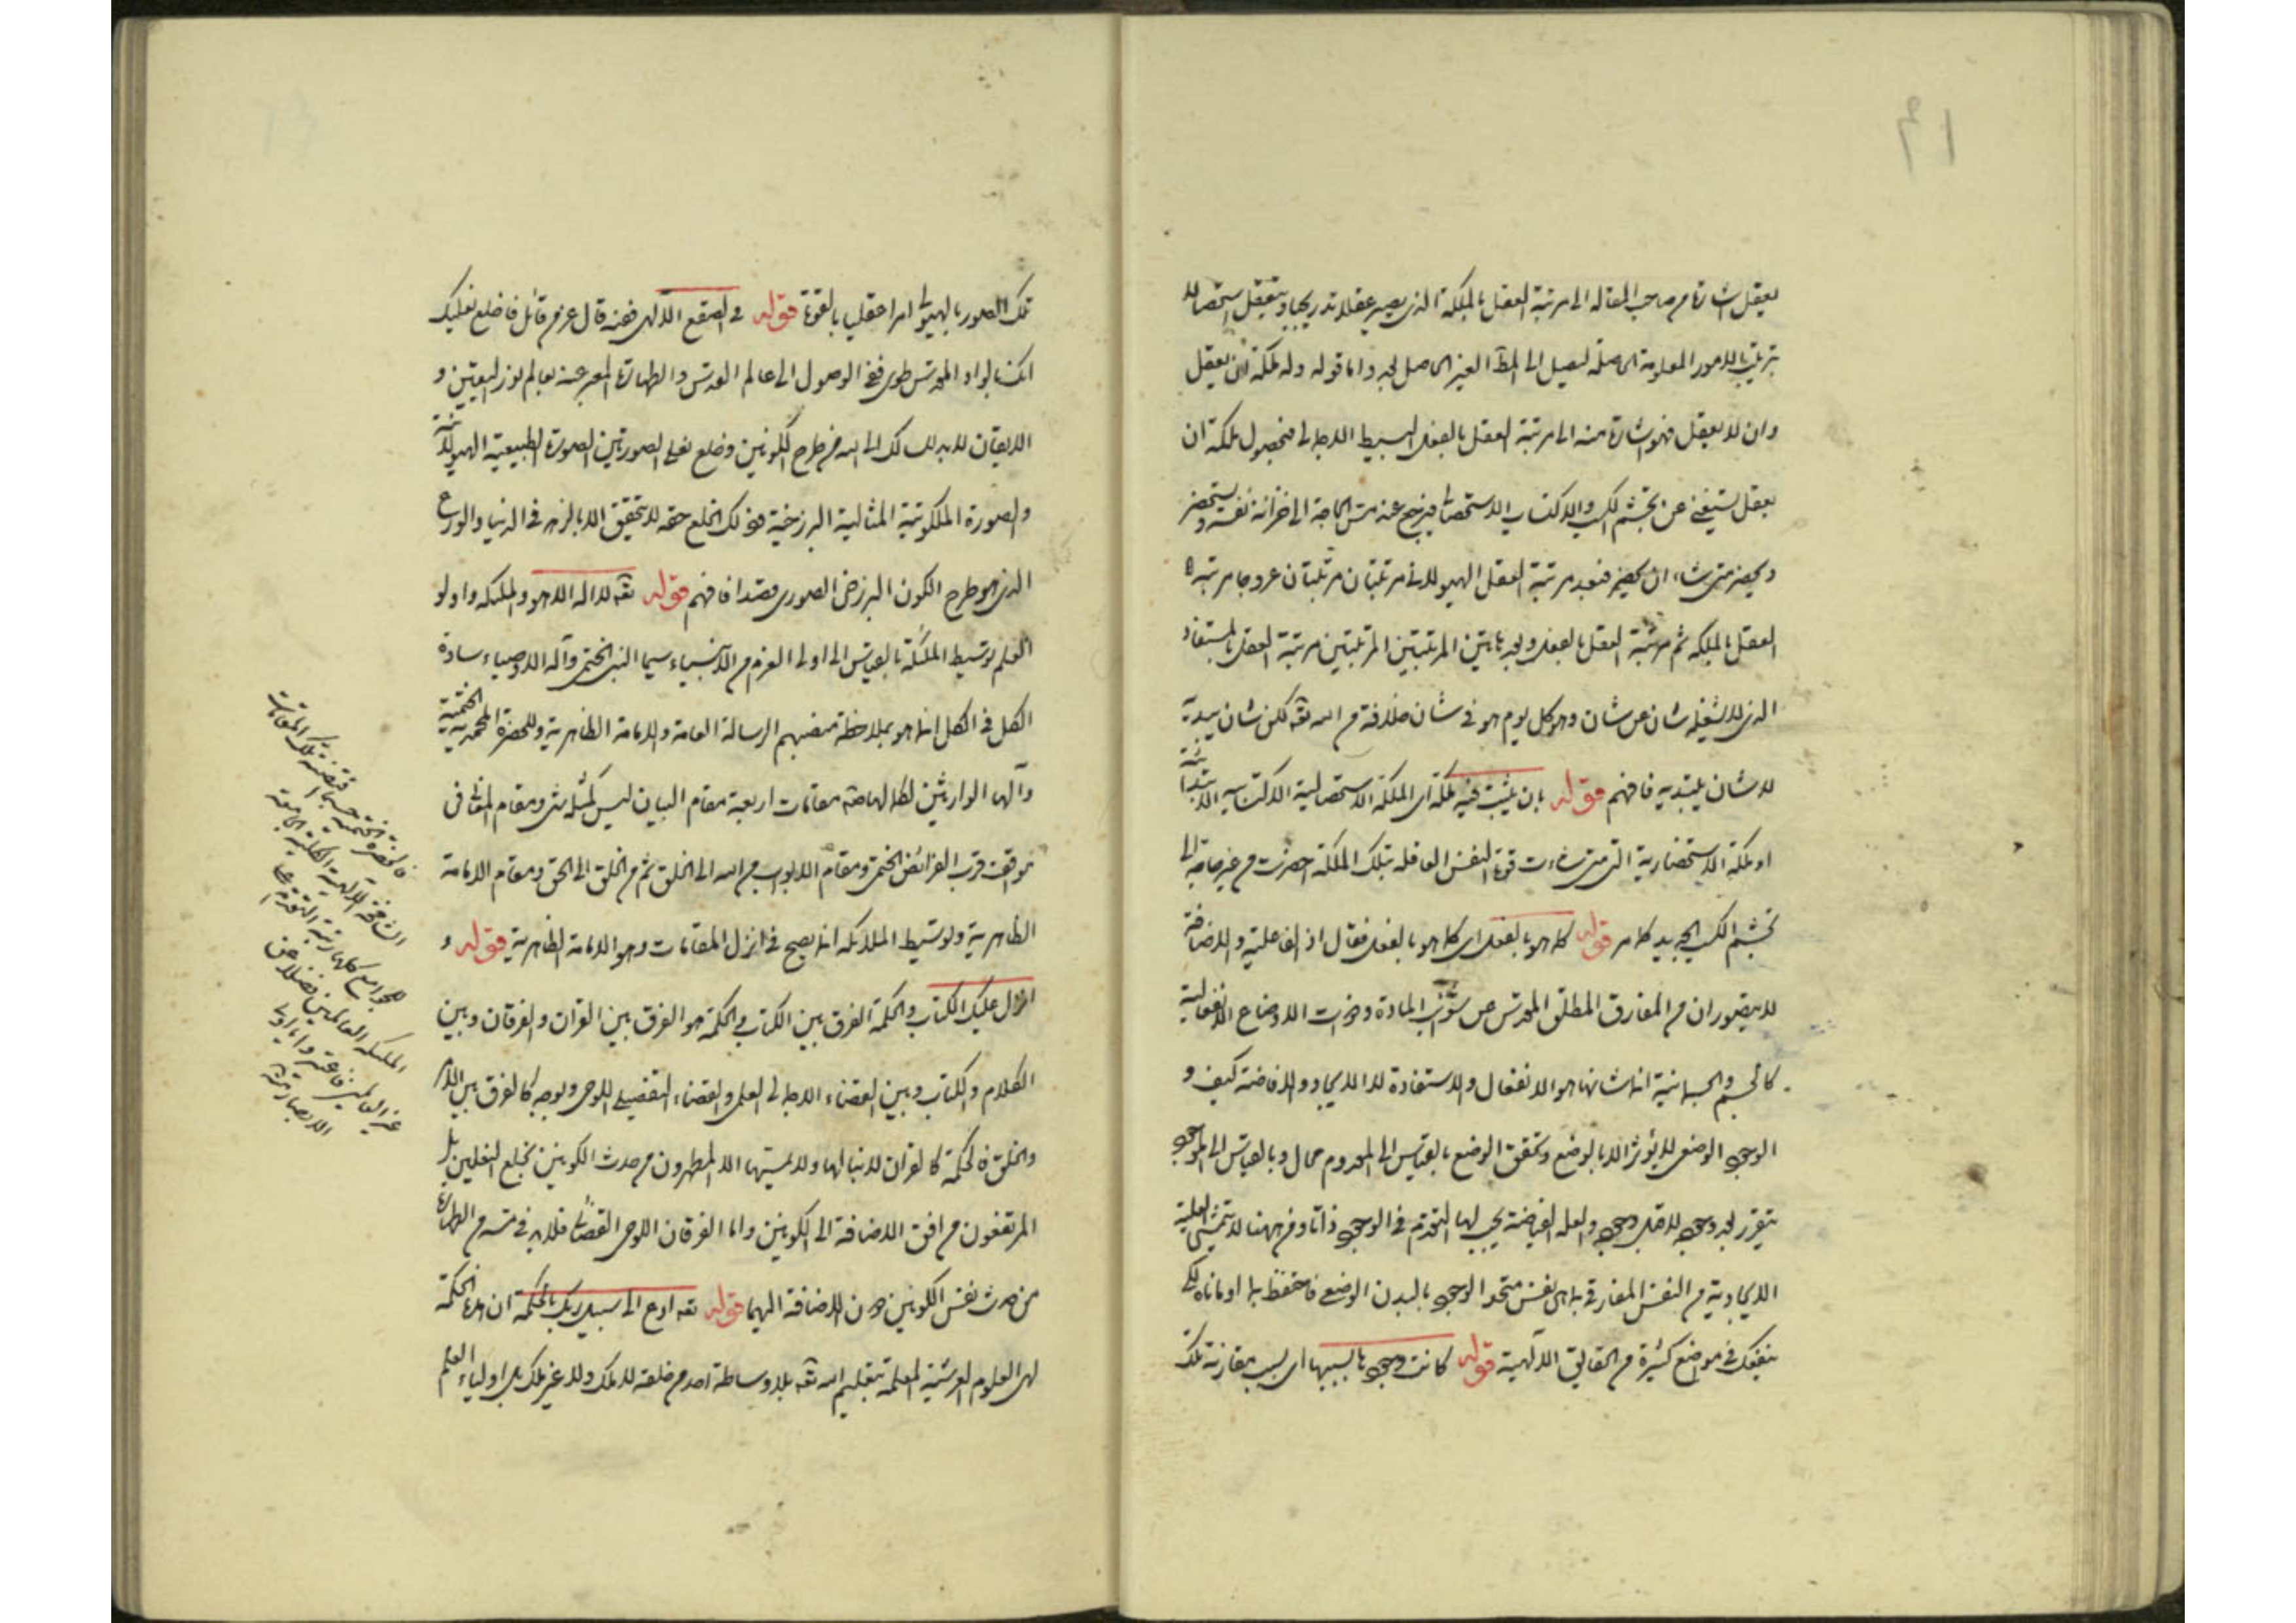 يعقل اشارة من صاحب المقاله الى مرتبة العقل بالملكة الذى يصير عقلا تدريجيا ويتعقل استحصالا
بترتيب الامور المعلومة الحاصلة ليصل الى المط الغير الحاصل بعد واما قوله وله ملكة ان يعقل
وان لا يعقل فهو اشارة منه الى مرتبة العقل بالفعل البسيط الاجمالى فبحصول ملكة ان
يعقل يستغنى عن تجشم الكسب والاكتساب الاستحصالى فيرجع عند مس الحاجة الى خزانة نفسه ويستحضر
ويحضر متى شاء ان يحضر فبعد مرتبة العقل الهيولانى مرتبتان مرتبتان عروجا مرتبة
العقل بالملكه ثم مرتبة العقل بالفعل وبعد هاتين المرتبتين المرتبتين مرتبة العقل المستفاد
الذى لا يشغله شان عن شان وهو كل يوم هو فى شان خلافة من الله تعه لكن شان يبديه
لا شان يبتديه فافهم قوله بان يثبت فيه ملكة اى الملكة الاستحصالية الاكتسابيه الابتدائية
او ملكة الاستحضارية التى متى شاءت قوة النفس العاقله بتلك الملكة احضرت من غير حاجة الى
تجشم الكسب الجديد كما مر قوله كله هو بالفعل اى كما هو بالفعل فعال اذ الفاعلية والافاضة
لا يتصوران من المفارق المطلق المقدس عن شوائب المادة وذوات الاوضاع الانفعالية
كالجسم والجسمانية انما شانها هو الانفعال والاستفادة لا الايجاد والافاضة كيف و
الوجود الوضعى لا يؤثر الا بالوضع وتحقق الوضع بالقياس الى المعدوم محال وبالقياس الى الموجود
يتقرر بعد وجوده لا قبل وجوده والعله الفياضة يجب لها التقدم فى الوجود ذاتا ومن ههنا لا يتمشى العلية
الايجادية من النفس المفارقة بما هى نفس متحد الوجود بالبدن الوضعى فاحتفظ بما اومأناه لكى
ينفعك فى مواضع كثيرة من الحقايق الالهية قوله كانت وجودها لسببها اى بسبب مقارنة تلك
تلك الصور بالهيولى امرا عقليا بالقوة قوله فى الصقع الالهى فعنه قال عز من قائل فاخلع نعليك
انك بالواد المقدس طوى ففى الوصول الى عالم القدس والطهارة المعبر عنه بعالم نور اليقين و
الايقان لا بد لسالك الى الله من طرح الكونين وخلع نعلى الصورتين الصورة الطبيعية الهيولانية
والصورة الملكوتية المثالية البرزخية وذلك الخلع حقه لا يتحقق الا بالزهد فى الدنيا والورع
الذى هو طرح الكون البرزخى الصورى قصدا فافهم قوله تعه لا اله الا هو والملئكه واولو
العلم توسيط الملئكة بالقياس الى اولى العزم من الانبياء سيما النبى الختمى وآله الاوصياء سادة
الكل فى الكل انما هو بملاحظة منصبهم الرسالة العامة والامامة الظاهرية وللحضرة المحمدية الختمية
وآلها الوارثين لكمالها مقامات اربعة مقام البيان ليس كمثله شئ ومقام المعانى
موافقت قرب الفرائض الختمى ومقام الابواب من الله الى الخلق ثم من الخلق الى الحق ومقام الامامة
الظاهرية وتوسيط الملائكه انما يصح فى انزل المقامات وهو الامامة الظاهرية قوله و
انزل عليك الكتاب والحكمة الفرق بين الكتاب والحكمة هو الفرق بين القران والفرقان وبين
الكلام والكتاب وبين القضاء الاجمالى العلمى والقضاء التفصيلى اللوحى وبوجه كالفرق بين الامر
والخلق فالحكمة كالقرآن لا ينالها ولا يمسها الا المطهرون من حدث الكونين بخلع النعلين بل
المرتفعون من افق الاضافة الى الكونين واما الفرقان اللوحى القضائى فلا بد فى مسه من الطهارة
من حدث نفس الكونين دون الاضافة اليهما قوله تعه ادع الى سبيل ربك بالحكمة ان هذه الحكمة
لهى العلوم العرشية المعلمة بتعليم الله تعه بلا وساطة احد من خلقه لا ملك ولا غير ملك بل اولياء العلم
فالحضرة الختمية حسبما تقتضيه تلك المقامات
الالهية الكلية الجامعة
للجوامع كلها
الملئكه العالمين فضلا عن
غير العالمين فاعتبروا يا اولى
الابصار